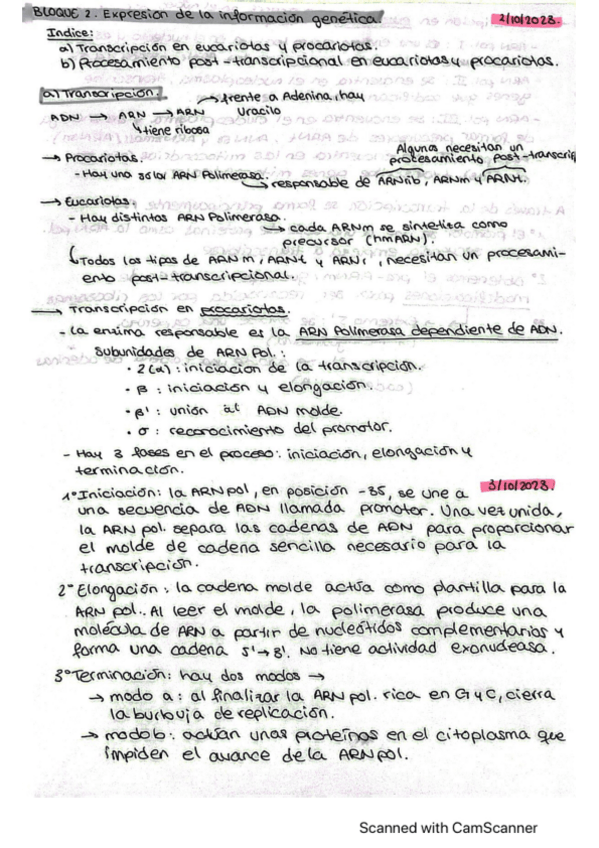 BLOQUE 2. Expresión de la información genética. 2/10/2023.
Indice:
a) Transcripción en eucariotas y procariotas.
b) Procesamiento post-transcripcional en eucariotas y procariotas.
a) Transcripción.
frente a Adenina, hay
ADN → ARN → ARN Uracilo
tiene ribosa
→ Procariotas.
Algunos necesitan un
procesamiento post-transcrip
- Hay una sola ARN Polimerasa.
responsable de ARNrib, ARNm y ARNt.
→ Eucariotas.
- Hay distintos ARN Polimerasa.
→ cada ARNm se sintetiza como
precursor (hmARN).
Todos los tipos de ARNm, ARNt y ARNr, necesitan un procesami-
ento post-transcripcional.
→ Transcripción en procariotas.
- La enzima responsable es la ARN Polimerasa dependiente de ADN.
Subunidades de ARN Pol.:
· 2(α): iniciación de la transcripción.
· β: iniciación y elongación.
· β': unión al ADN molde.
· σ: reconocimiento del promotor.
- Hay 3 fases en el proceso: iniciación, elongación y
terminación.
3/10/2023.
1º Iniciación: la ARN pol, en posición -35, se une a
una secuencia de ADN llamada promotor. Una vez unida,
la ARN pol. separa las cadenas de ADN para proporcionar
el molde de cadena sencilla necesario para la
transcripción.
2º Elongación: la cadena molde actúa como plantilla para la
ARN pol.. Al leer el molde, la polimerasa produce una
molécula de ARN a partir de nucleótidos complementarios y
forma una cadena 5'→3'. No tiene actividad exonucleasa.
3º Terminación: hay dos modos →
→ modo a: al finalizar la ARN pol. rica en G y C, cierra
la burbuja de replicación.
→ modo b: actúan unas proteínas en el citoplasma que
impiden el avance de la ARN pol.
Scanned with CamScanner